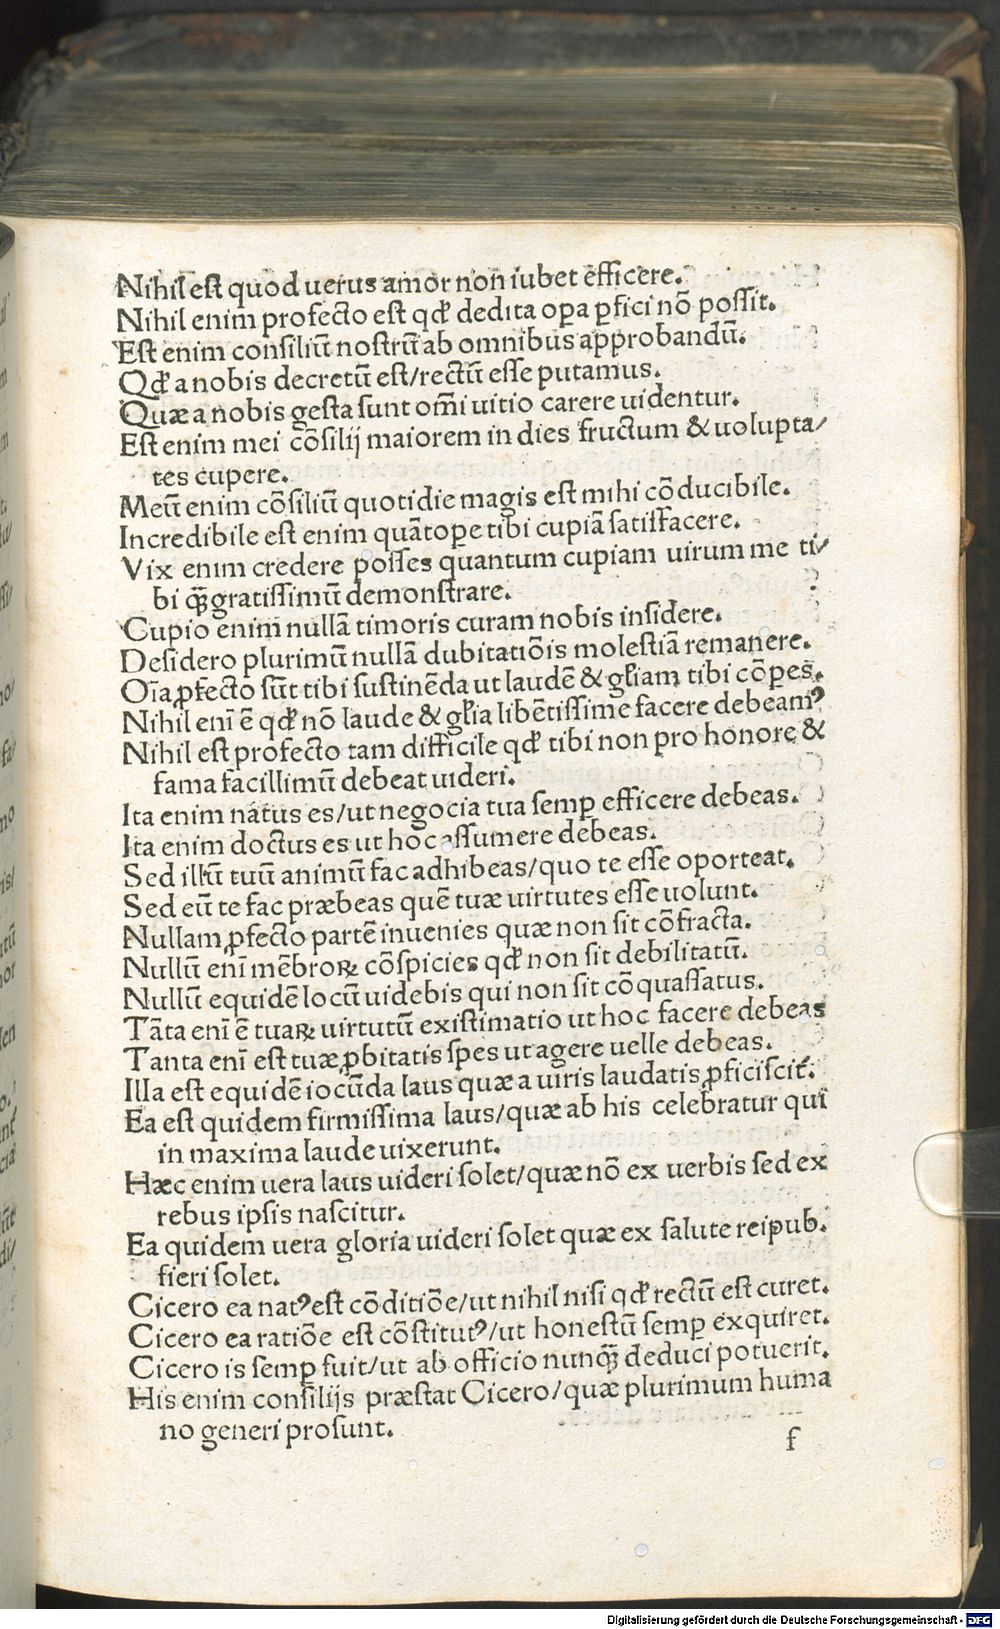 Nihil est quod uerus amor non iubet efficere.
Nihil enim profecto est qd' dedita oꝑa ꝑfici nō possit.
Est enim consiliū nostrū ab omnibus approbandū.
Qd' a nobis decretū est/rectū esse putamus.
Quæ a nobis gesta sunt om̄i uitio carere uidentur.
Est enim mei cōsilij maiorem in dies fructum & uolupta/
tes cupere.
Meū enim cōsiliū quotidie magis est mihi cōducibile.
Incredibile est enim quātoꝑe tibi cupiā satisfacere.
Vix enim credere posses quantum cupiam uirum me ti/
bi q̄ꝫ gratissimū demonstrare.
Cupio enim nullā timoris curam nobis insidere.
Desidero plurimū nullā dubitatiōis molestiā remanere.
Oīa ꝓfecto sūt tibi sustinēda ut laudē & gl'iam tibi cōꝑes.
Nihil enī ē qd' nō laude & gl'ia libētissime facere debeamꝰ
Nihil est profecto tam difficile qd' tibi non pro honore &
fama facillimū debeat uideri.
Ita enim natus es/ut negocia tua semꝑ efficere debeas.
Ita enim doctus es ut hoc assumere debeas.
Sed illū tuū animū fac adhibeas/quo te esse oporteat.
Sed eū te fac præbeas quē tuæ uirtutes esse uolunt.
Nullam ꝓfecto partē inuenies quæ non sit cōfracta.
Nullū enī mēbroꝝ cōspicies qd' non sit debilitatū.
Nullū equidē locū uidebis qui non sit cōquassatus.
Tāta enī ē tuaꝝ uirtutū existimatio ut hoc facere debeas
Tanta enī est tuæ ꝓbitatis spes ut agere uelle debeas.
Illa est equidē iocūda laus quæ a uiris laudatis ꝓficiscit᷑.
Ea est quidem firmissima laus/quæ ab his celebratur qui
in maxima laude uixerunt.
Hæc enim uera laus uideri solet/quæ nō ex uerbis sed ex
rebus ipsis nascitur.
Ea quidem uera gloria uideri solet quæ ex salute reipub.
fieri solet.
Cicero ea natꝰ est cōditiōe/ut nihil nisi qd' rectū est curet.
Cicero ea ratiōe est cōstitutꝰ/ut honestū semꝑ exquiret.
Cicero is semꝑ fuit/ut ab officio nunq̄ꝫ deduci potuerit.
His enim consilijs præstat Cicero/quæ plurimum huma
no generi prosunt.
f
Digitalisierung gefördert durch die Deutsche Forschungsgemeinschaft - DFG